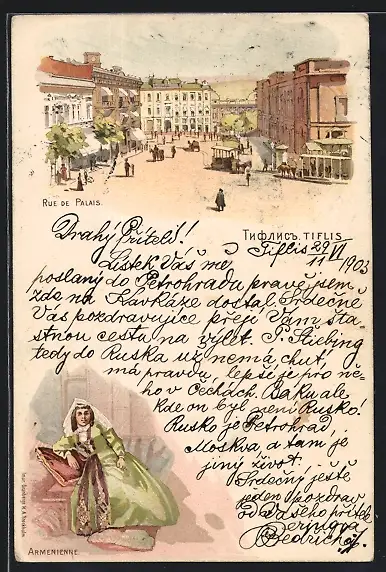 RUE DE PALAIS.
ТИФЛИСЪ. TIFLIS
Drahý Příteli!
Tiflis 29/11 VI 1903
Lístek Váš mě
poslaný do Petrohradu pravě jsem
zde na Kavkáze dostal. Srdečně
Vás pozdravujíce přeji Vám šťa-
stnou cestu na výlet. P. Stiebing
tedy do Ruska už nemá chuť,
má pravdu, lepší je pro ně-
ho v Čechách. Baku ale
kde on byl není Rusko!
Rusko je Petrohrad,
Moskva, a tam je
jiný život.
Srdečný ještě
jeden pozdrav
od Vašeho přítele
Bedřich
ARMENIENNE.